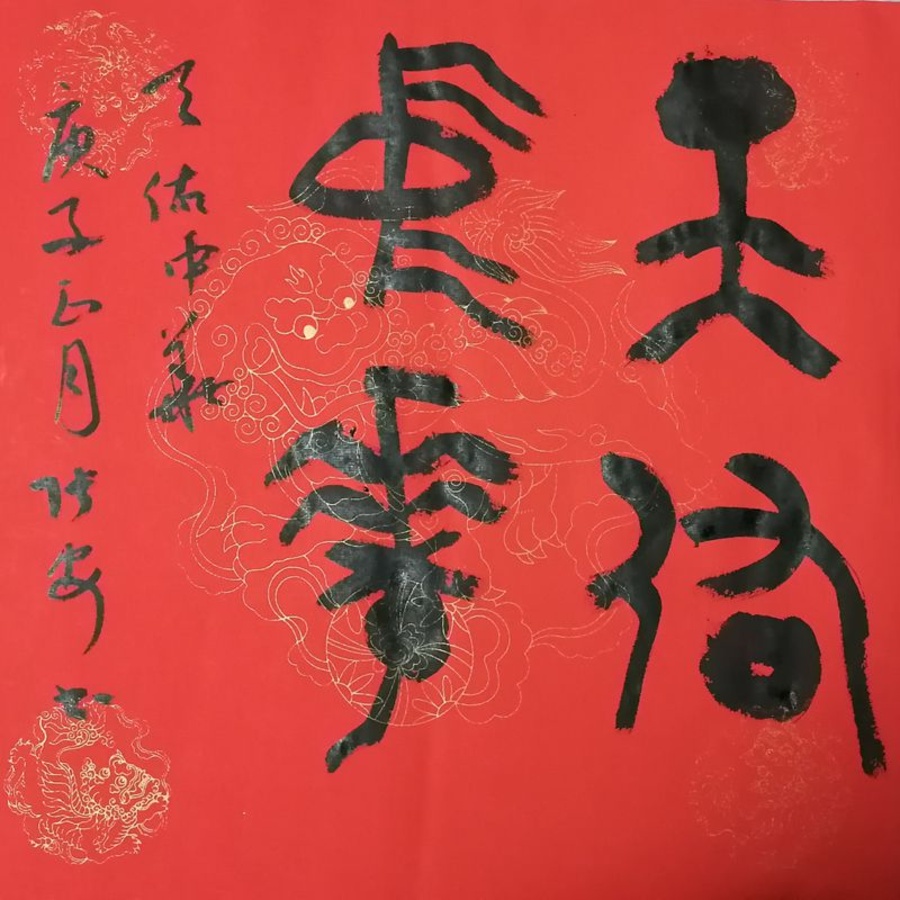 天佑
中華
天佑中華
庚子正月張安书